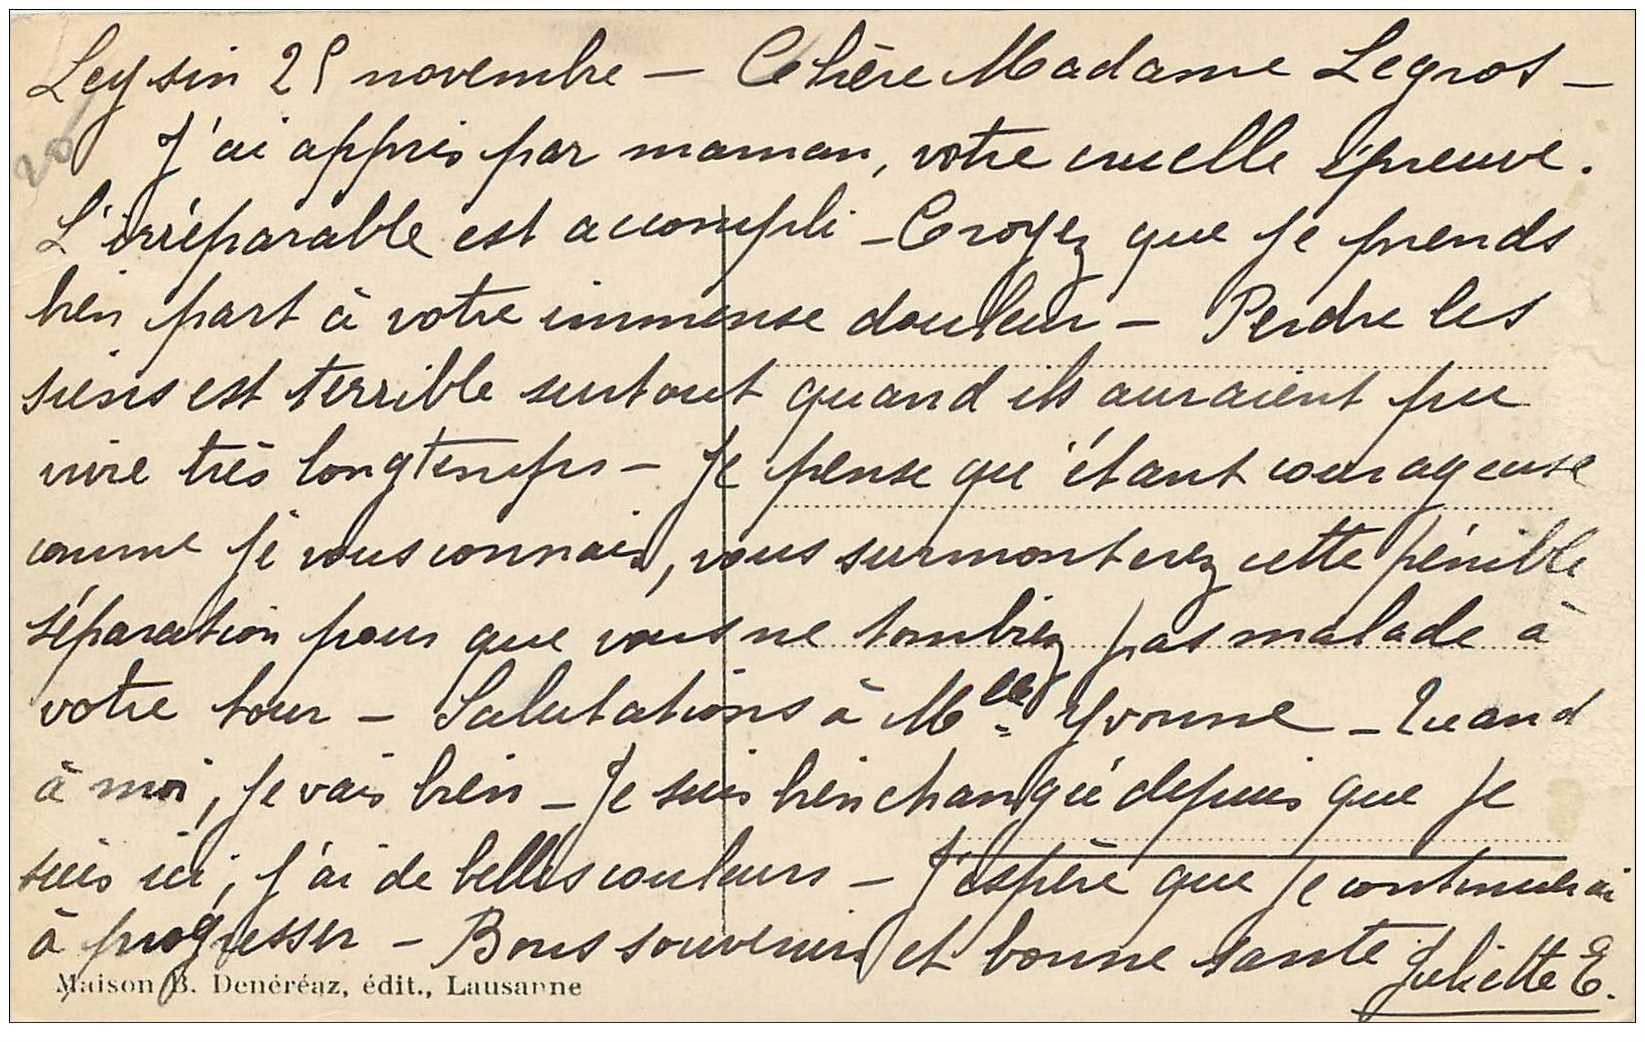 Leysin 25 novembre – Chère Madame Legros –
J'ai appris par maman, votre cruelle épreuve.
L'irréparable est accompli – Croyez que je prends
bien part à votre immense douleur – Perdre les
siens est terrible surtout quand ils auraient pu
vivre très longtemps – Je pense qu'étant courageuse
comme je vous connais, vous surmonterez cette pénible
séparation pour que vous ne tombiez pas malade à
votre tour – Salutations à Melle Yvonne – Quand
à moi, je vais bien – Je suis bien changé depuis que je
suis ici, j'ai de belles couleurs – J'espère que je continuerai
à progresser – Bons souvenirs et bonne santé
Juliette E.
Maison B. Denéréaz, édit., Lausanne
20